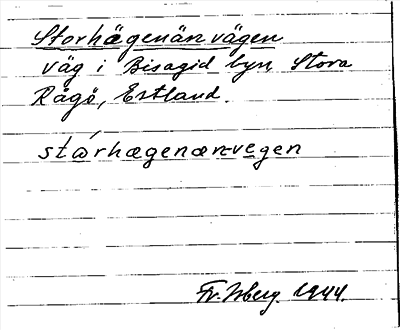 Storhägenänvägen
väg i Bisagid byn, Stora
Rågö, Estland.
stɷ́rhægenæn-vegen
Fr. Isberg 1944.